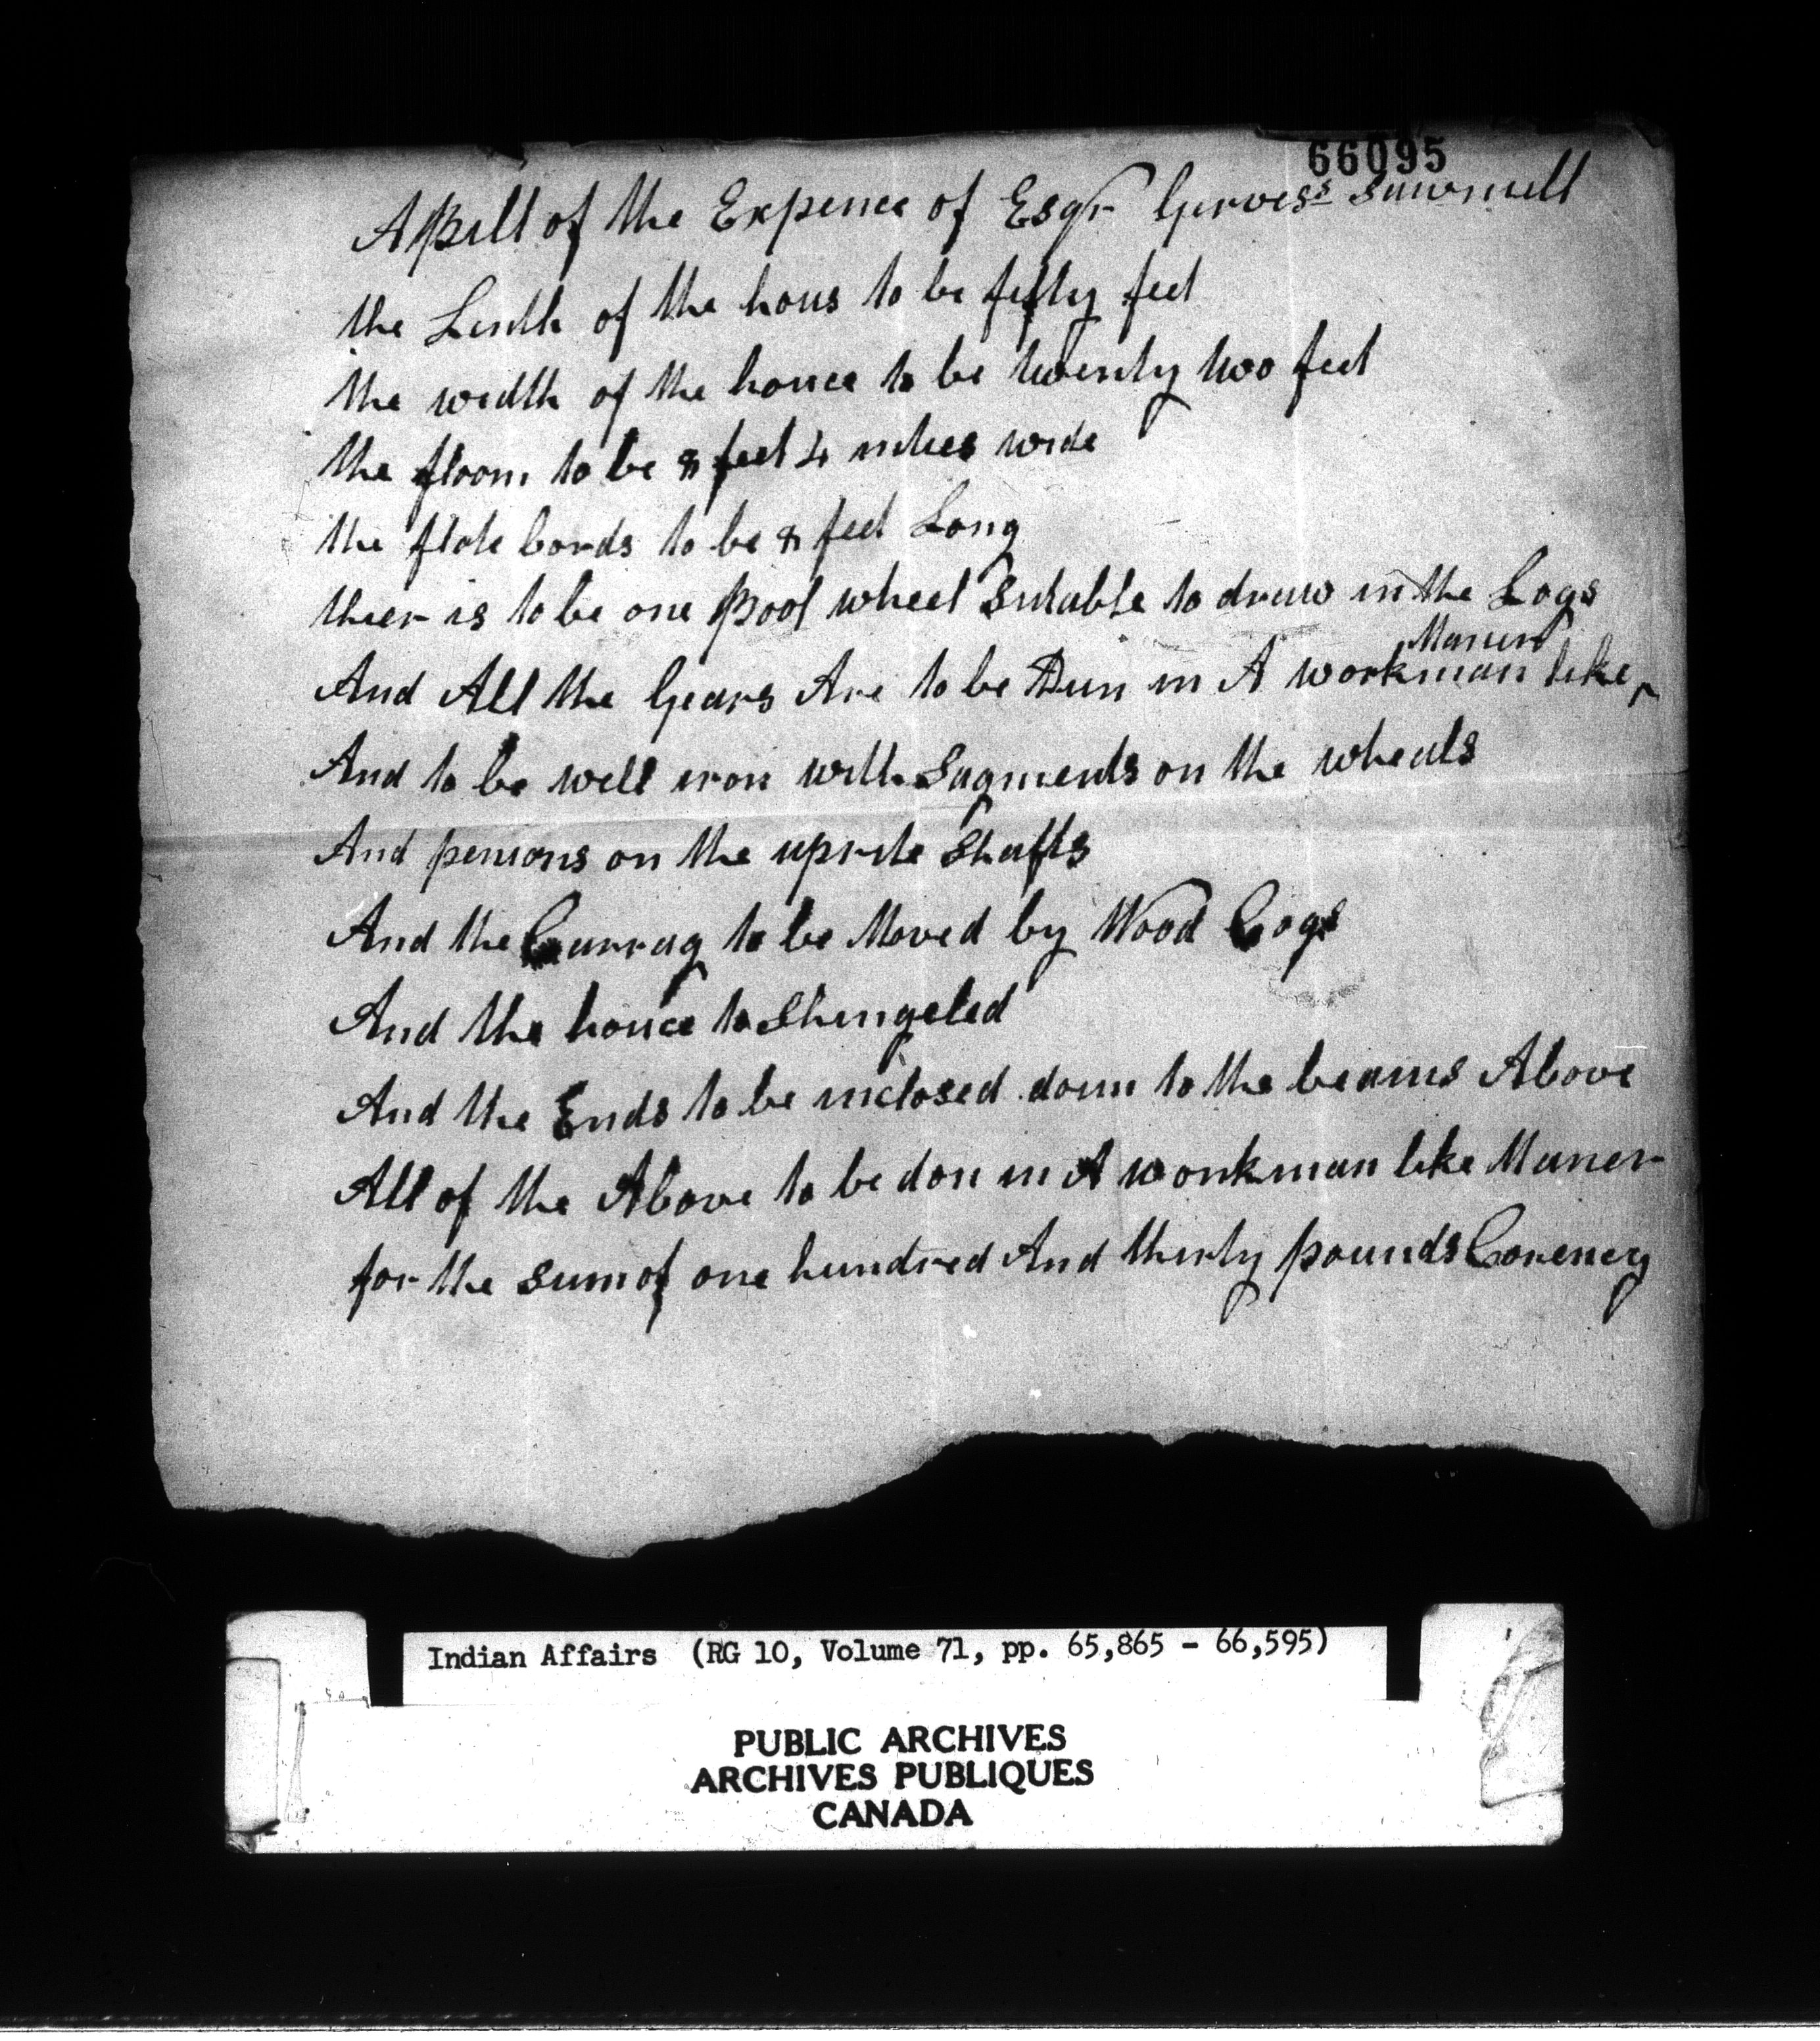 66095
A Bill of the Expence of Esqr Gervess sawmill
the Linth of the hous to be fifty feet
the width of the houce to be twenty two feet
the floom to be 8 feet 4 inches wide
the flote bords to be 8 feet Long
ther is to be one Bool wheel Sutable to draw in the Logs
Maner
And All the Gears Are to be Dun in A workman like ^
And to be well iron with Sagments on the wheals
And penions on the uprite Shafts
And the Carrag to be Moved by Wood Cogs
And the houce to Shingeled
And the Ends to be inclosed down to the beams Above
All of the Above to be don in A workman like Maner
for the Sum of one hundred And thirty pounds Coreney
Indian Affairs (RG 10, Volume 71, pp. 65,865 - 66,595)
PUBLIC ARCHIVES
ARCHIVES PUBLIQUES
CANADA